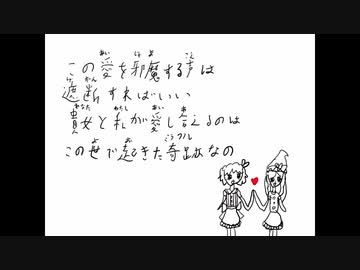 この愛を邪魔する声は
遮断すればいい
貴女と私が愛し合えるのは
この世で起きた奇跡なの